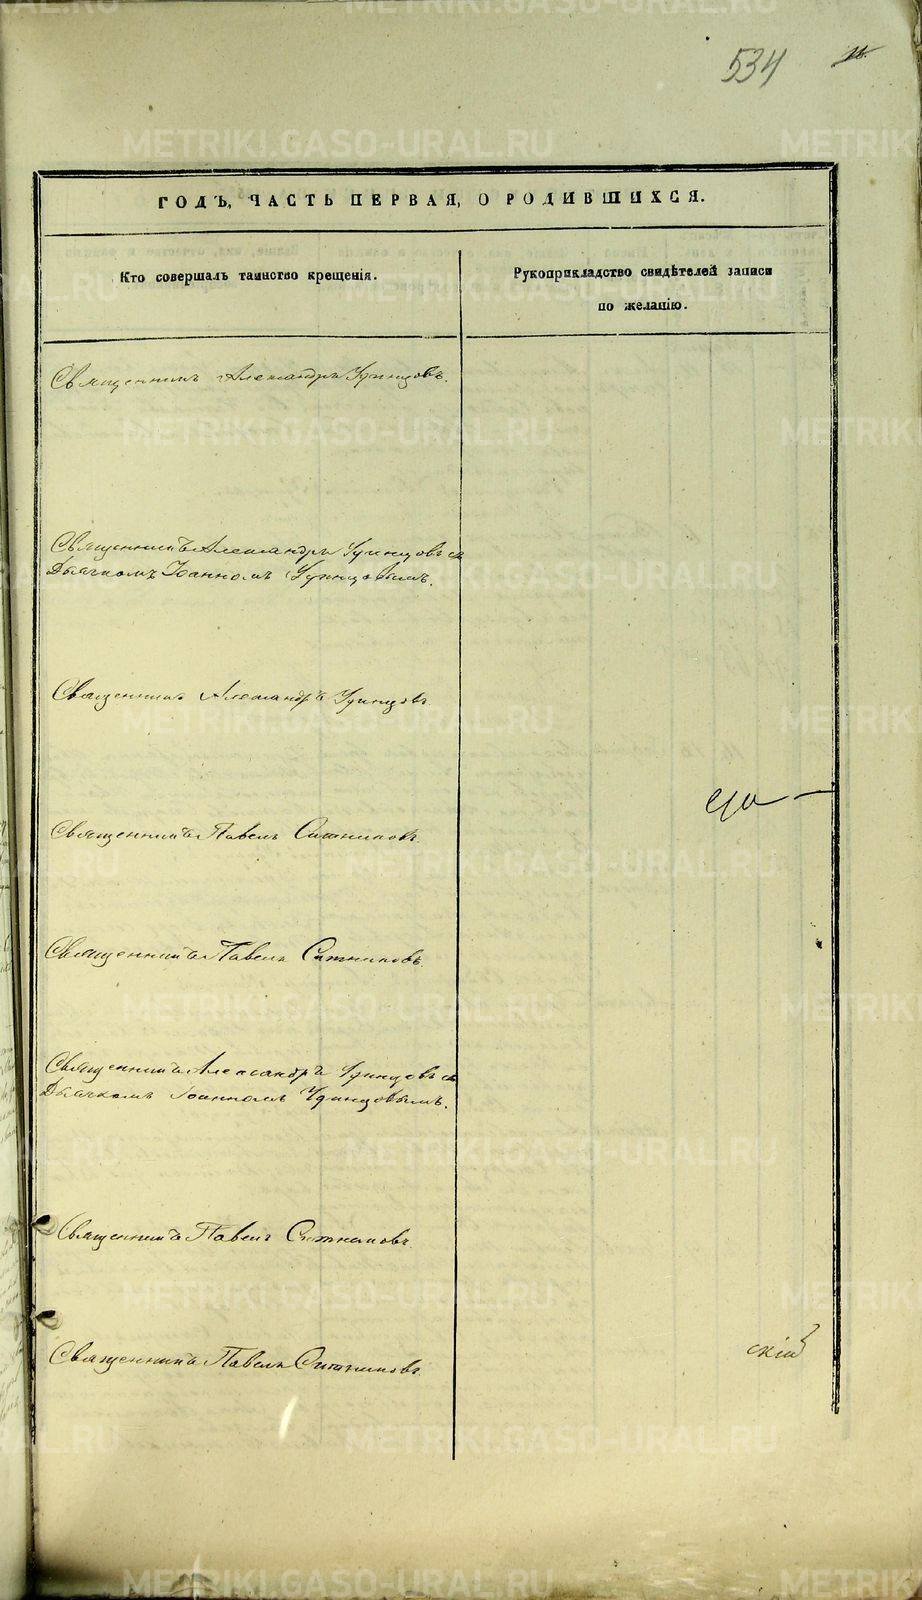 534
ГОДЪ, ЧАСТЬ ПЕРВАЯ, О РОДИВШИХСЯ.
Кто совершалъ таинство крещенія.
Рукоприкладство свидѣтелей записи
по желанію.
Священникъ Александръ Удинцовъ.
Священникъ Александръ Удинцовъ съ
Дьячкомъ Іоанномъ Удинцовымъ.
Священникъ Александръ Удинцовъ
Священникъ Павелъ Ситниковъ.
Священникъ Павелъ Ситниковъ.
Священникъ Александръ Удинцовъ съ
Дьячкомъ Іоанномъ Удинцовымъ.
Священникъ Павелъ Ситниковъ.
Священникъ Павелъ Ситниковъ.
скій
METRIKI.GASO-URAL.RU